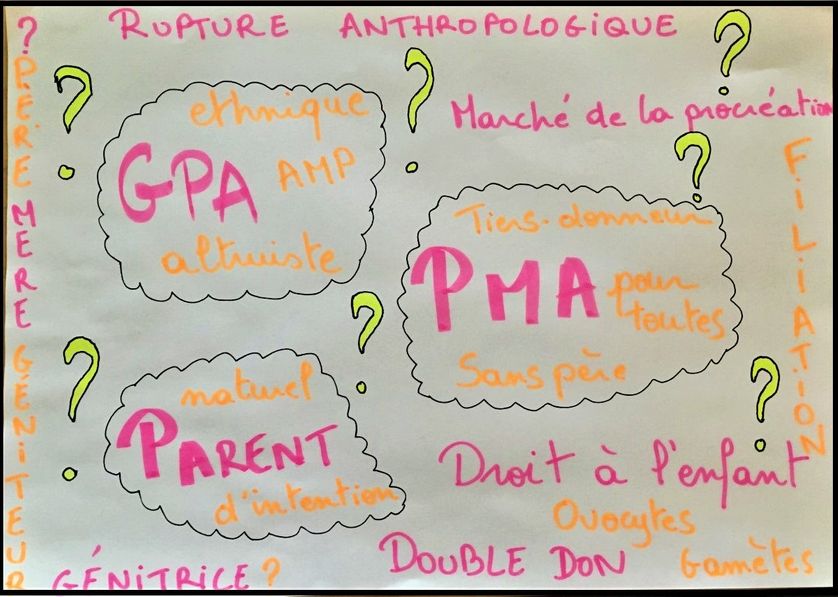 RUPTURE ANTHROPOLOGIQUE
? PÈRE MERE GÉNiTEUR
ethnique
GPA AMP
altruiste
Marché de la procréation
Tiers-donneur
PMA pour
toutes
Sans père
FILIATION
naturel
PARENT
d'intention
Droit à l'enfant
Ovocytes
DOUBLE DON Gamètes
GÉNiTRiCE ?